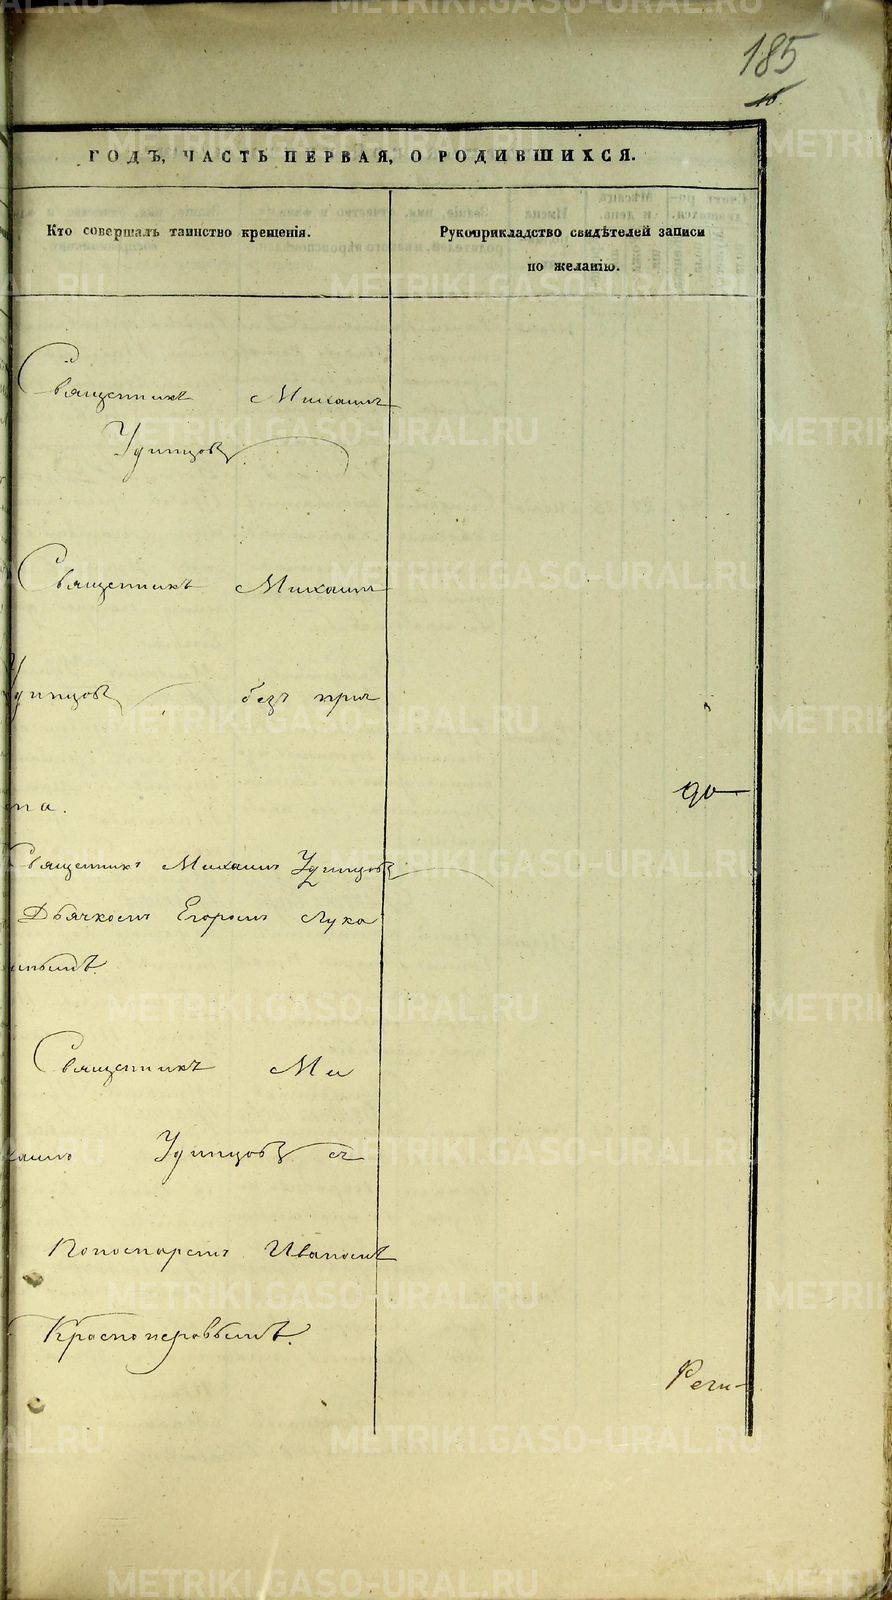 185
16.
ГОДЪ, ЧАСТЬ ПЕРВАЯ, О РОДИВШИХСЯ.
Кто совершалъ таинство крещенія.
Рукоприкладство свидѣтелей записи
по желанію.
Священникъ Михаилъ
Удинцовъ
Священникъ Михаилъ
Удинцовъ безъ прич
та.
до
Священникъ Михаилъ Удинцовъ
Дьячкомъ Егоромъ Лука
нымъ.
Священникъ Ми
хаилъ Удинцовъ съ
Пономаремъ Иваномъ
Красноперовымъ.
METRIKI.GASO-URAL.RU